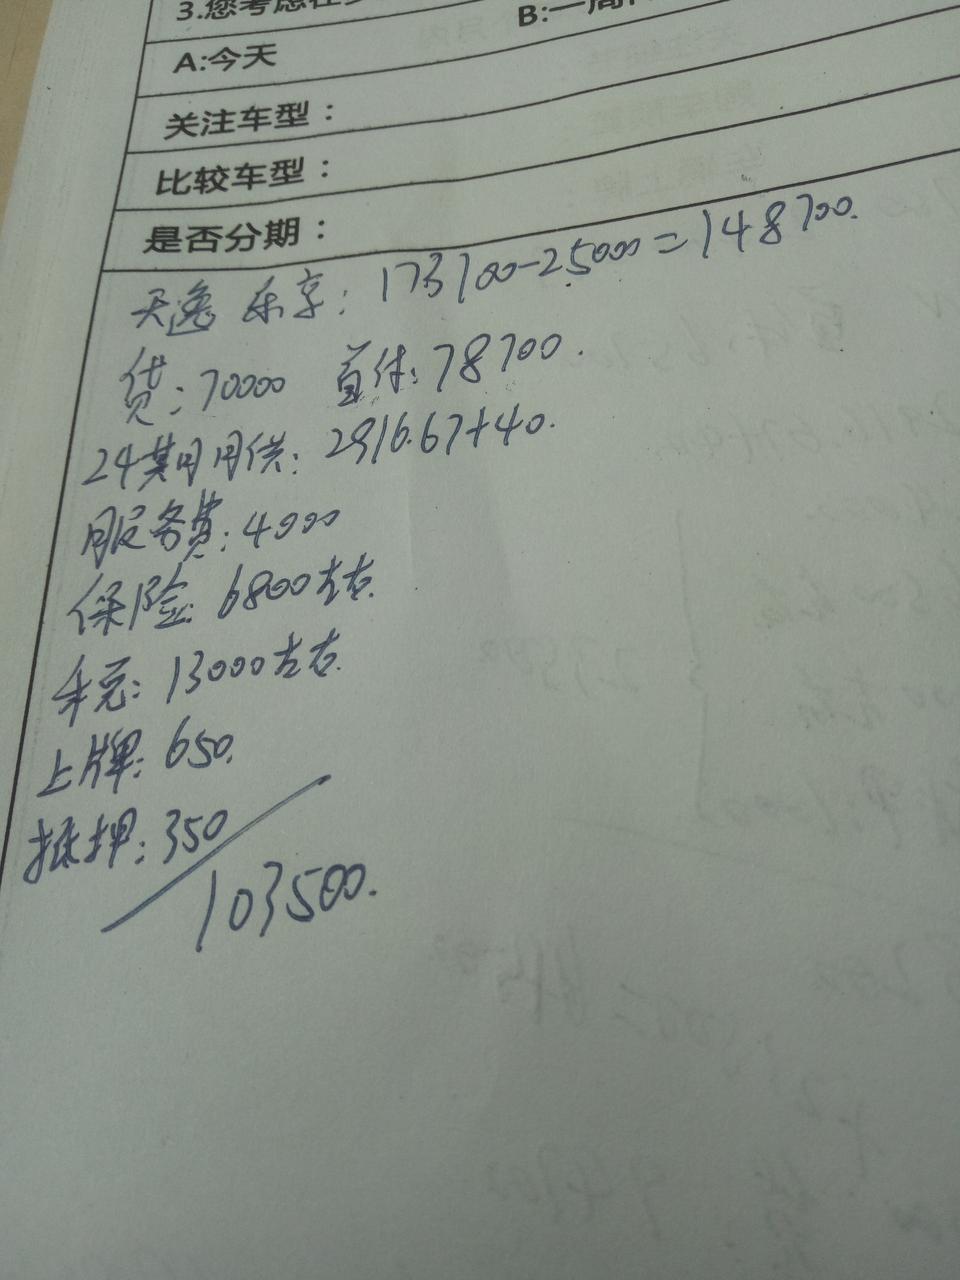 3.您考虑在
B:一周
A:今天
关注车型：
比较车型：
是否分期：
天逸 乐享: 173700-25000=148700.
贷:70000 首付:78700.
24期月供: 2916.67+40.
服务费:4000
保险:6800左右.
车税:13000左右.
上牌:650.
抵押:350
103500.